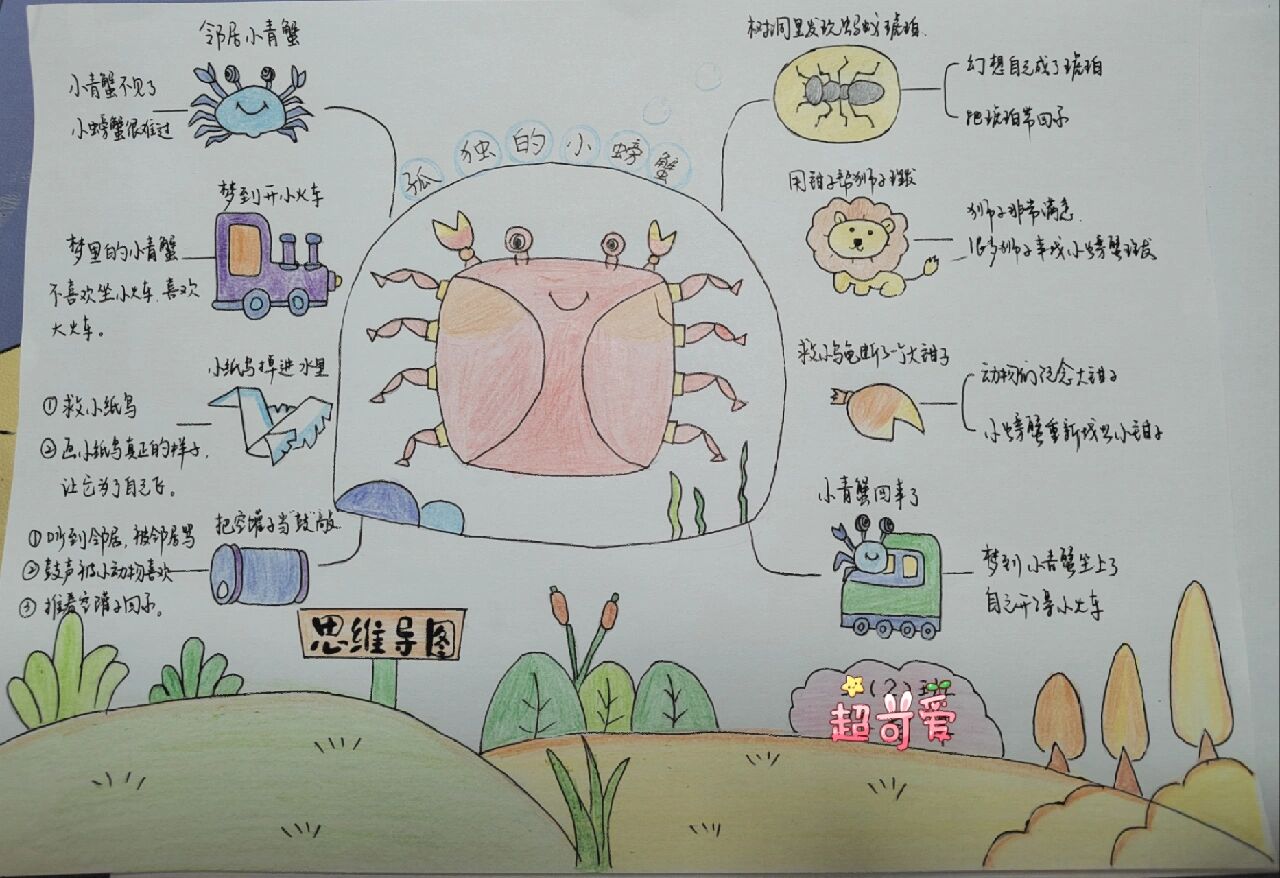 孤独的小螃蟹
邻居小青蟹
小青蟹不见了
小螃蟹很难过
梦到开小火车
梦里的小青蟹
不喜欢坐小火车,喜欢
大火车。
小纸鸟掉进水里
①救小纸鸟
②画小纸鸟真正的样子,
让它为了自己飞。
把空罐子当"鼓"敲
①吵到邻居,被邻居骂
②鼓声被小动物喜欢
③推着空罐子回家。
树洞里发现蚂蚁琥珀.
幻想自己成了琥珀
把琥珀带回家
用钳子给狮子理发
狮子非常满意.
很多狮子来找小螃蟹理发
救小乌龟断了一个大钳子
动物们纪念大钳子
小螃蟹重新长出小钳子
小青蟹回来了
梦到小青蟹坐上了
自己开的小火车
思维导图
(2)班
超可爱